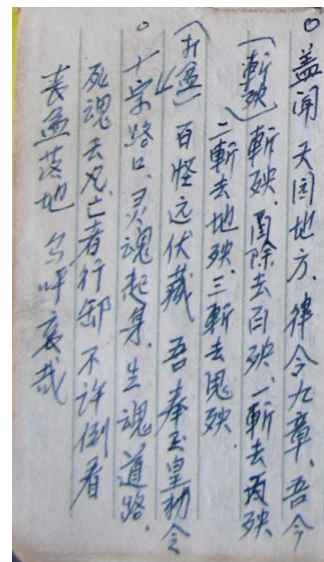 ○盖闻天园地方、律令九章、吾今
(斬殃)斬殃、除去百殃、一斬去天殃
二斬去地殃、三斬去鬼殃
(打盆)百怪远伏藏 吾奉玉皇勅令
○十字路口、灵魂起身、生魂道路、
死魂去兄、亡者行 不许倒看
丧盆落地 乌呼哀哉